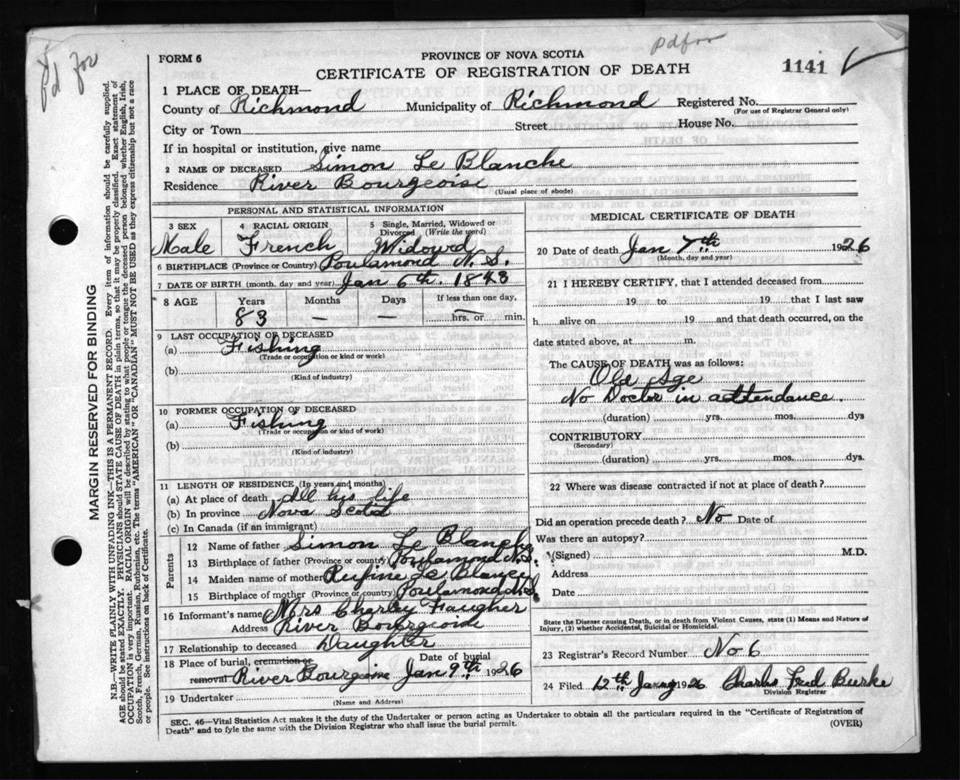 pd for
pd for
FORM 6
PROVINCE OF NOVA SCOTIA
CERTIFICATE OF REGISTRATION OF DEATH
1141
1 PLACE OF DEATH—
County of Richmond Municipality of Richmond Registered No.
(For use of Registrar General only)
City or Town Street House No.
If in hospital or institution, give name
2 NAME OF DECEASED Simon Le Blanche
Residence River Bourgeoise
(Usual place of abode)
PERSONAL AND STATISTICAL INFORMATION
3 SEX 4 RACIAL ORIGIN 5 Single, Married, Widowed or Divorced (Write the word)
Male French Widowd
6 BIRTHPLACE (Province or Country) Poulamond N. S.
7 DATE OF BIRTH (month, day and year) Jan 6th. 1843
8 AGE Years Months Days If less than one day,
83 — — — hrs. or min.
9 LAST OCCUPATION OF DECEASED
(a) Fishing
(Trade or occupation or kind or work)
(b)
(Kind of industry)
10 FORMER OCCUPATION OF DECEASED
(a) Fishing
(Trade or occupation or kind of work)
(b)
(Kind of industry)
11 LENGTH OF RESIDENCE (In years and months)
(a) At place of death All his life
(b) In province Nova Scotia
(c) In Canada (if an immigrant)
Parents
12 Name of father Simon Le Blanche
13 Birthplace of father (Province or country) Poulamond N.S.
14 Maiden name of mother Rufine Le Blanc
15 Birthplace of mother (Province or country) Poulamond N.S.
16 Informant's name Mrs Charley Fougher
Address River Bourgeoise
17 Relationship to deceased Daughter
18 Place of burial, cremation or removal River Bourgeoise Date of burial Jan 9th 1926
19 Undertaker
(Name and Address)
MEDICAL CERTIFICATE OF DEATH
20 Date of death Jan 7th 1926
(Month, day and year)
21 I HEREBY CERTIFY, that I attended deceased from
19 to 19 that I last saw
h alive on 19 and that death occurred, on the
date stated above, at m.
The CAUSE OF DEATH was as follows:
Old Age
No Doctor in attendance.
(duration) yrs. mos. dys
CONTRIBUTORY
(Secondary)
(duration) yrs. mos. dys.
22 Where was disease contracted if not at place of death?
Did an operation precede death? No Date of
Was there an autopsy?
(Signed) M.D.
Address
Date
State the Disease causing Death, or in death from Violent Causes, state (1) Means and Nature of
Injury, (2) whether Accidental, Suicidal or Homicidal.
23 Registrar's Record Number No 6
24 Filed 12th Jany 1926 Charles Fred Burke
Division Registrar
SEC. 46—Vital Statistics Act makes it the duty of the Undertaker or person acting as Undertaker to obtain all the particulars required in the "Certificate of Registration of
Death" and to fyle the same with the Division Registrar who shall issue the burial permit.
(OVER)
MARGIN RESERVED FOR BINDING
N.B.—WRITE PLAINLY WITH UNFADING INK—THIS IS A PERMANENT RECORD. Every item of information should be carefully supplied.
AGE should be stated EXACTLY. PHYSICIANS should STATE CAUSE OF DEATH in plain terms, so that it may be properly classified. Exact statement of
OCCUPATION is very important. RACIAL ORIGIN will be described by stating to what people or tongue the deceased person belonged whether English, Irish,
Scotch, French, German, Russian, Ruthenian, etc. The terms "AMERICAN" OR "CANADIAN" MUST NOT BE USED as they express citizenship but not a race
or people. See instructions on back of Certificate.